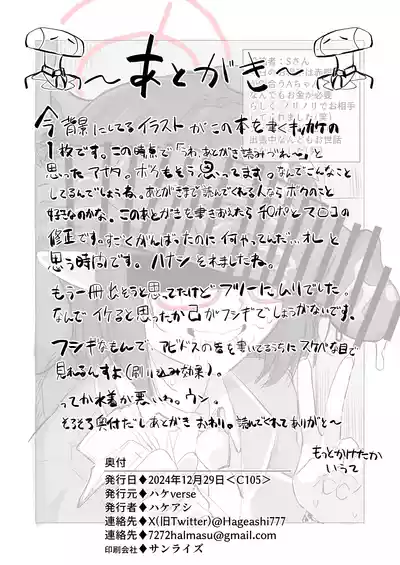 ～あとがき～
今背景にしてるイラストがこの本を書くキッカケの
1枚です。この時点で「うわ、あとがき読みづれ〜」と
思ったアナタ。ボクもそう思ってます。なんでこんなこと
してるんでしょうね。あとがきまで読んでくれる人ならボクのこと
好きなのかな。このあとがきを書きおえたらチ○ポとマ○コの
修正です。すごくがんばったのに何やってんだ…オレ と
思う時間です。ハナシ それましたね。
もう一冊出そうと思ってたけどフツーにムリでした。
なんでイケると思ったか己がフシギでしょうがないです。
フシギなもんで、アビドスの皆を書いてるうちにスケベな目で
見れるんすよ(刷り込み効果)。
ってか水着が悪いわ。ウン。
そろそろ奥付だしあとがき おわり。読んでくれてありがと〜
もっとかけたか
いうて
奥付
発行日♦2024年12月29日<C105>
発行元♦ハケverse
発行者♦ハケアシ
連絡先♦X(旧Twitter)@Hageashi777
連絡先♦7272halmasu@gmail.com
印刷会社♦サンライズ